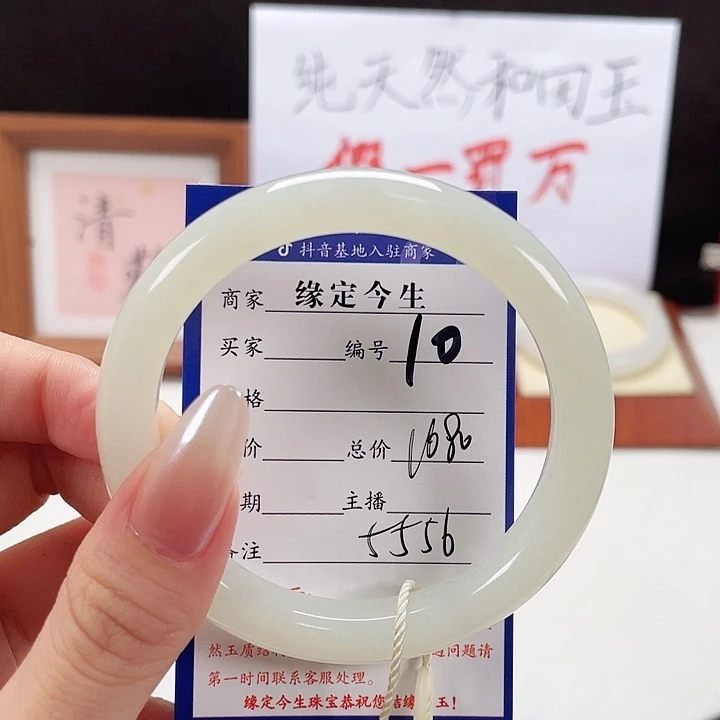 纯天然和田玉
假一罚万
清
抖音基地入驻商家
商家 缘定今生
买家 编号 10
格
价 总价 1680
期 主播
备注 5556
然玉质结
问题请
第一时间联系客服处理。
缘定今生珠宝恭祝您结缘 玉!